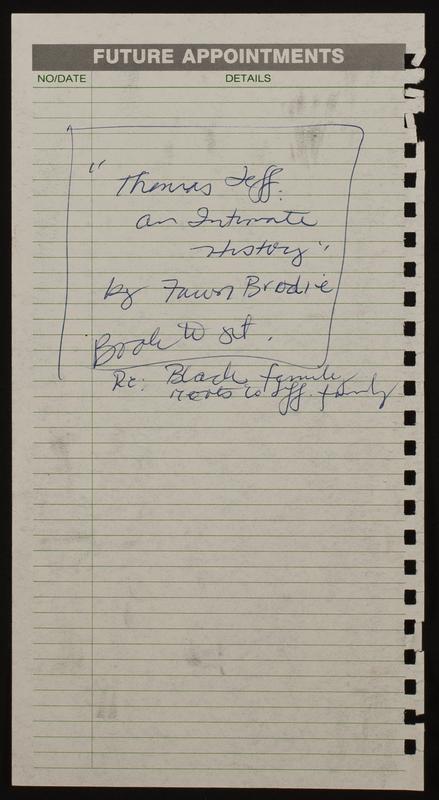 FUTURE APPOINTMENTS
NO/DATE DETAILS
"Thomas Jeff.
an Intimate
History"
by Fawn Brodie
Book to get.
Re: Black family
roots to Jeff. family